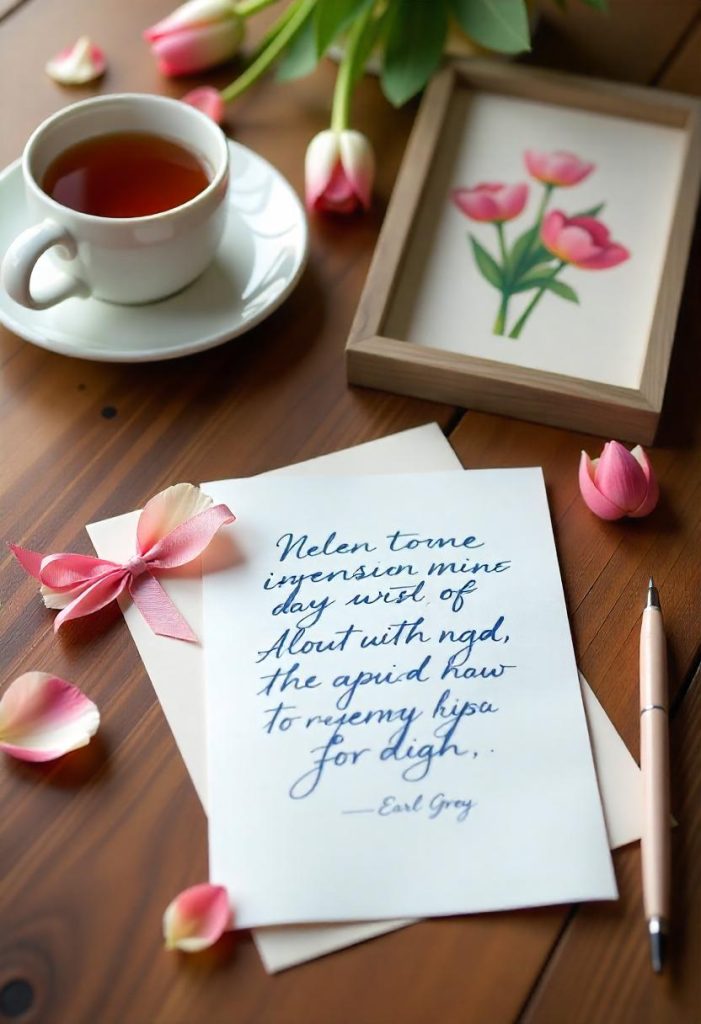 Nelen tome
mine
day wist, of
Alout with ngd,
the apuid haw
to hipa
for digh,.
—Earl Grey